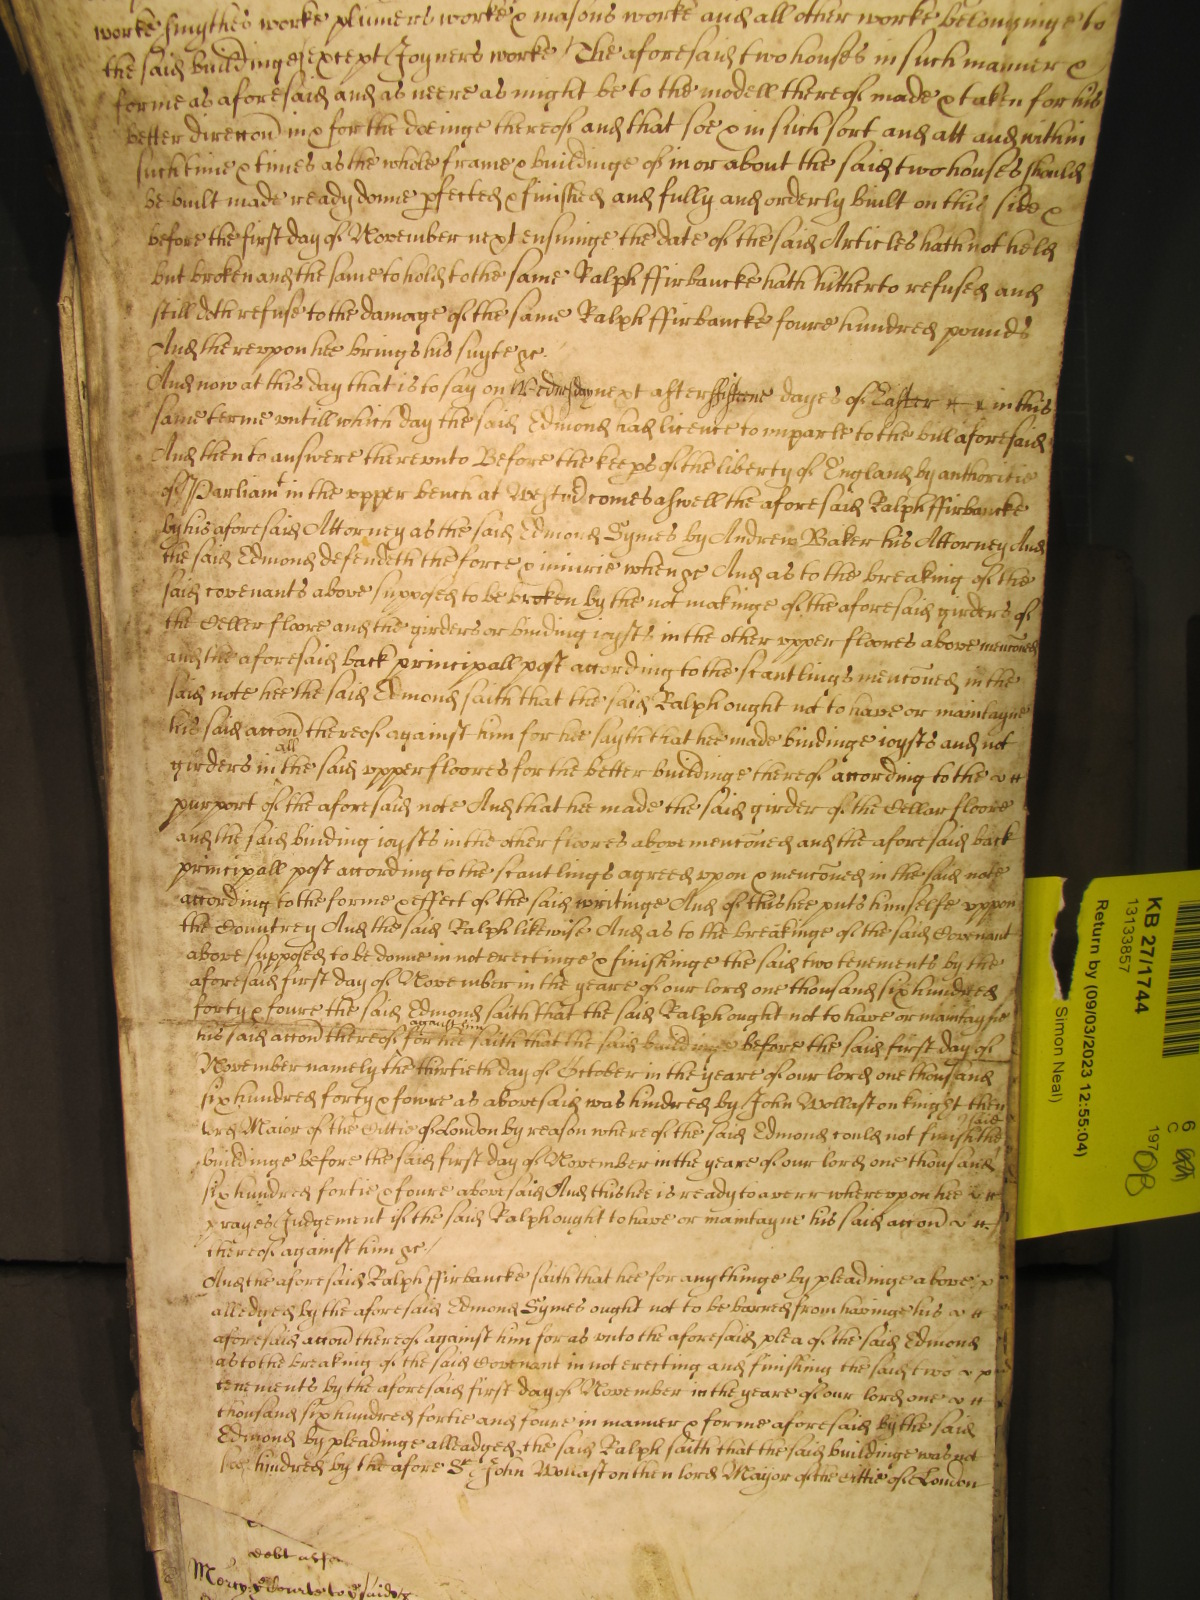 worke smythes worke plumers worke & masons worke and all other worke belonginge to
the said buildinge (except Joyners worke) The aforesaid two houses in such manner &
forme as aforesaid and as neere as might be to the modell thereof made & taken for his
better direccon in & for the doeinge thereof and that soe & in such sort and att and within
such time & times as the whole frame & buildinge of in or about the said two houses should
be built made ready donne pfected & finished and fully and orderly built on this side &
before the first day of November next ensuinge the date of the said Articles hath not held
but broken and the same to hold to the same Ralph ffirbancke hath hitherto refused and
still doth refuse to the damage of the same Ralph ffirbancke foure hundred pounds
And thereuppon hee brings his suyte &c.
And now at this day that is to say on Wednesday next after fifteene dayes of Easter in this
same terme untill which day the said Edmond had licence to imparle to the bill aforesaid
And then to answere thereunto Before the keeps of the liberty of England by authoritie
of Parliamt in the upper bench at Westm comes aswell the aforesaid Ralph ffirbancke
by his aforesaid Attorney as the said Edmond Symes by Andrew Baker his Attorney And
the said Edmond defendeth the force & iniurie when &c And as to the breaking of the
said covenants above supposed to be broken by the not makinge of the aforesaid girders of
the Celler floore and the girders or binding ioysts in the other upper floores above menconed
and the aforesaid back principall post according to the scantlings menconed in the
said note hee the said Edmond saith that the said Ralph ought not to have or maintayne
his said accon thereof against him for hee sayth that hee made bindinge ioysts and not
girders in all the said upper floores for the better buildinge thereof according to the
purport of the aforesaid note And that hee made the said girder of the Cellar floore
and the said binding ioysts in the other floores above menconed and the aforesaid back
principall post according to the scantlings agreed upon & menconed in the said note
according to the forme & effect of the said writinge And of this hee puts himselfe uppon
the Countrey And the said Ralph likewise And as to the breakinge of the said Covenant
above supposed to be donne in not erectinge & finishinge the said two tenements by the
aforesaid first day of November in the yeare of our lord one thousand six hundred
forty & foure the said Edmond saith that the said Ralph ought not to have or maintayne
his said accon thereof against him for hee saith that the said buildinge before the said first day of
November namely the thirtieth day of October in the yeare of our lord one thousand
six hundred forty & fowre as abovesaid was hindred by John Wollaston knight then
lord Maior of the Cittie of London by reason whereof the said Edmond could not finish the said
buildinge before the said first day of November in the yeare of our lord one thousand
six hundred fortie & foure abovesaid And this hee is ready to averr whereupon hee
prayes Judgement if the said Ralph ought to have or maintayne his said accon
thereof against him &c/
And the aforesaid Ralph ffirbancke saith that hee for any thinge by pleadinge above
alledged by the aforesaid Edmond Symes ought not to be barred from havinge his
aforesaid accon thereof against him for as unto the aforesaid plea of the said Edmond
as to the breaking of the said Covenant in not erecting and finishing the said two
tenements by the aforesaid first day of November in the yeare of our lord one
thousand six hundred fortie and foure in manner & forme aforesaid by the said
Edmond by pleadinge alleadged the said Ralph saith that the said buildinge was not
soe hindred by the afore Sr John Wollaston then lord Mayor of the Cittie of London
debt
Mercy
KB 27/1744
13133857
Return by (09/03/2023 12:55:04)
Simon Neal)
6
C
197